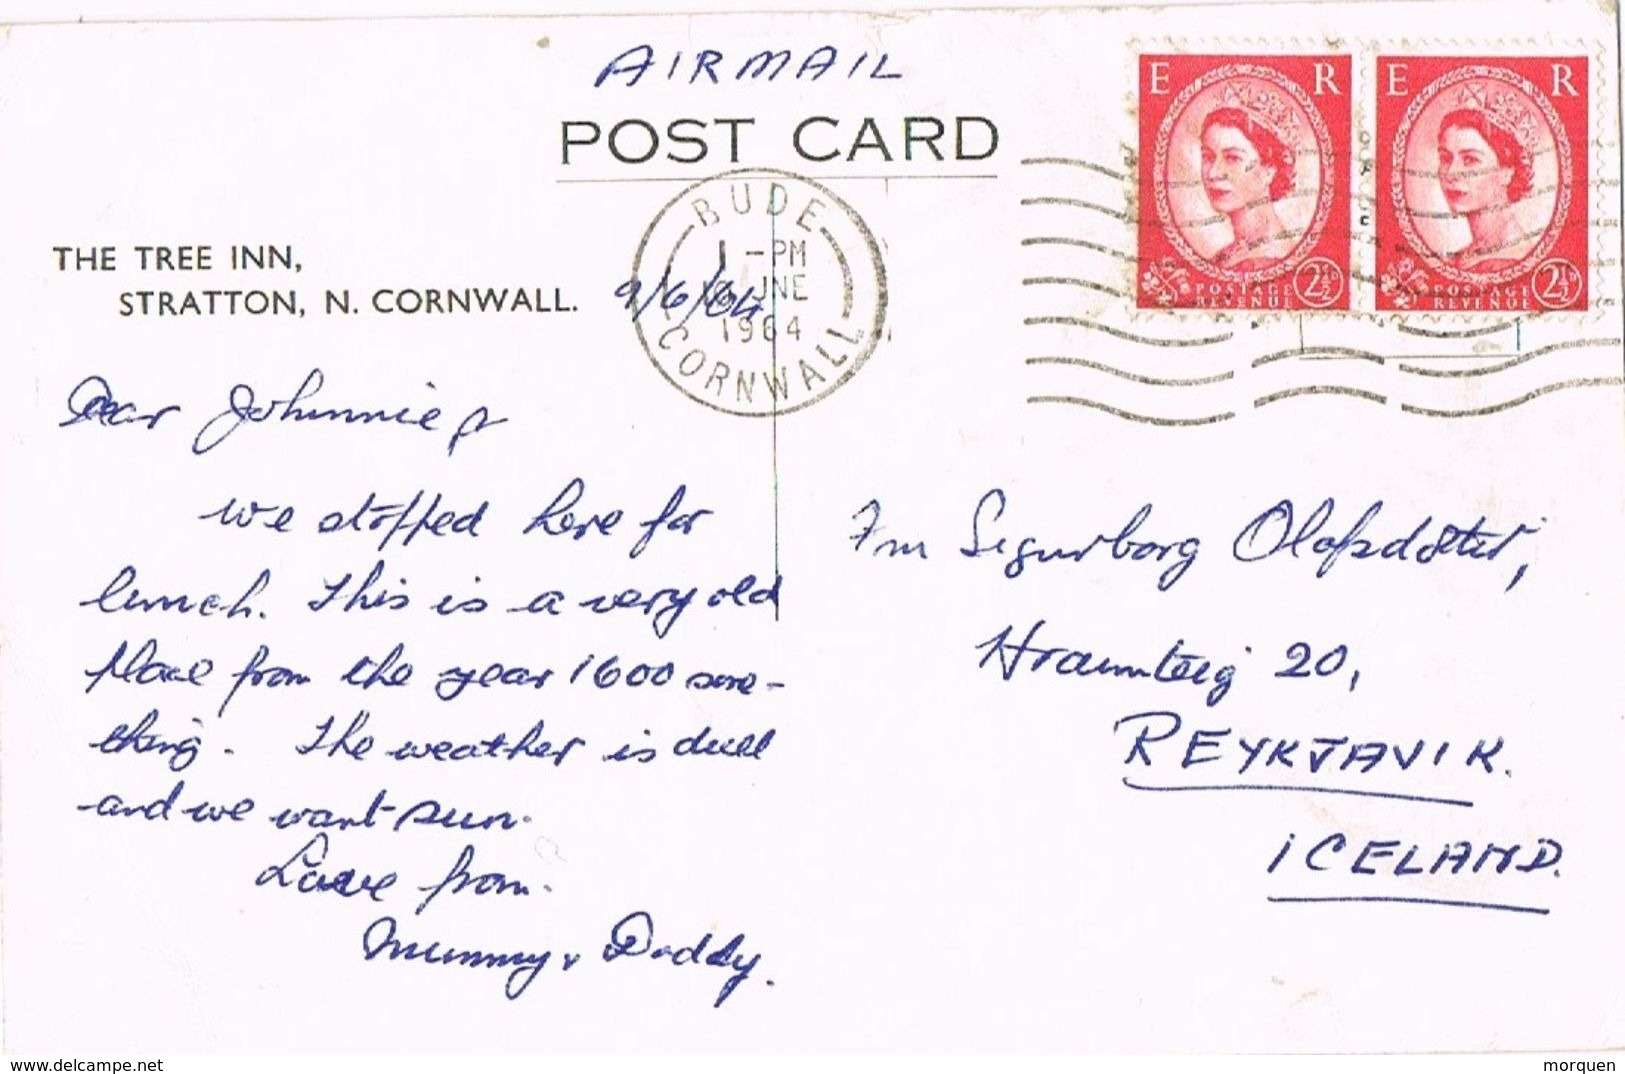 AIRMAIL
POST CARD
E R
E R
POSTAGE REVENUE 2½D
POSTAGE REVENUE 2½D
BUDE
1 - PM
UNE
1964
CORNWALL
THE TREE INN,
STRATTON, N. CORNWALL.
9/6/64
Dear Johnnie
we stopped here for
lunch. This is a very old
place from the year 1600 some-
thing. The weather is dull
and we want sun.
Love from.
Mummy & Daddy.
Sigurborg Olafsdóttir,
Hraunteig 20,
REYKJAVIK.
ICELAND.
delcampe.net
morquen